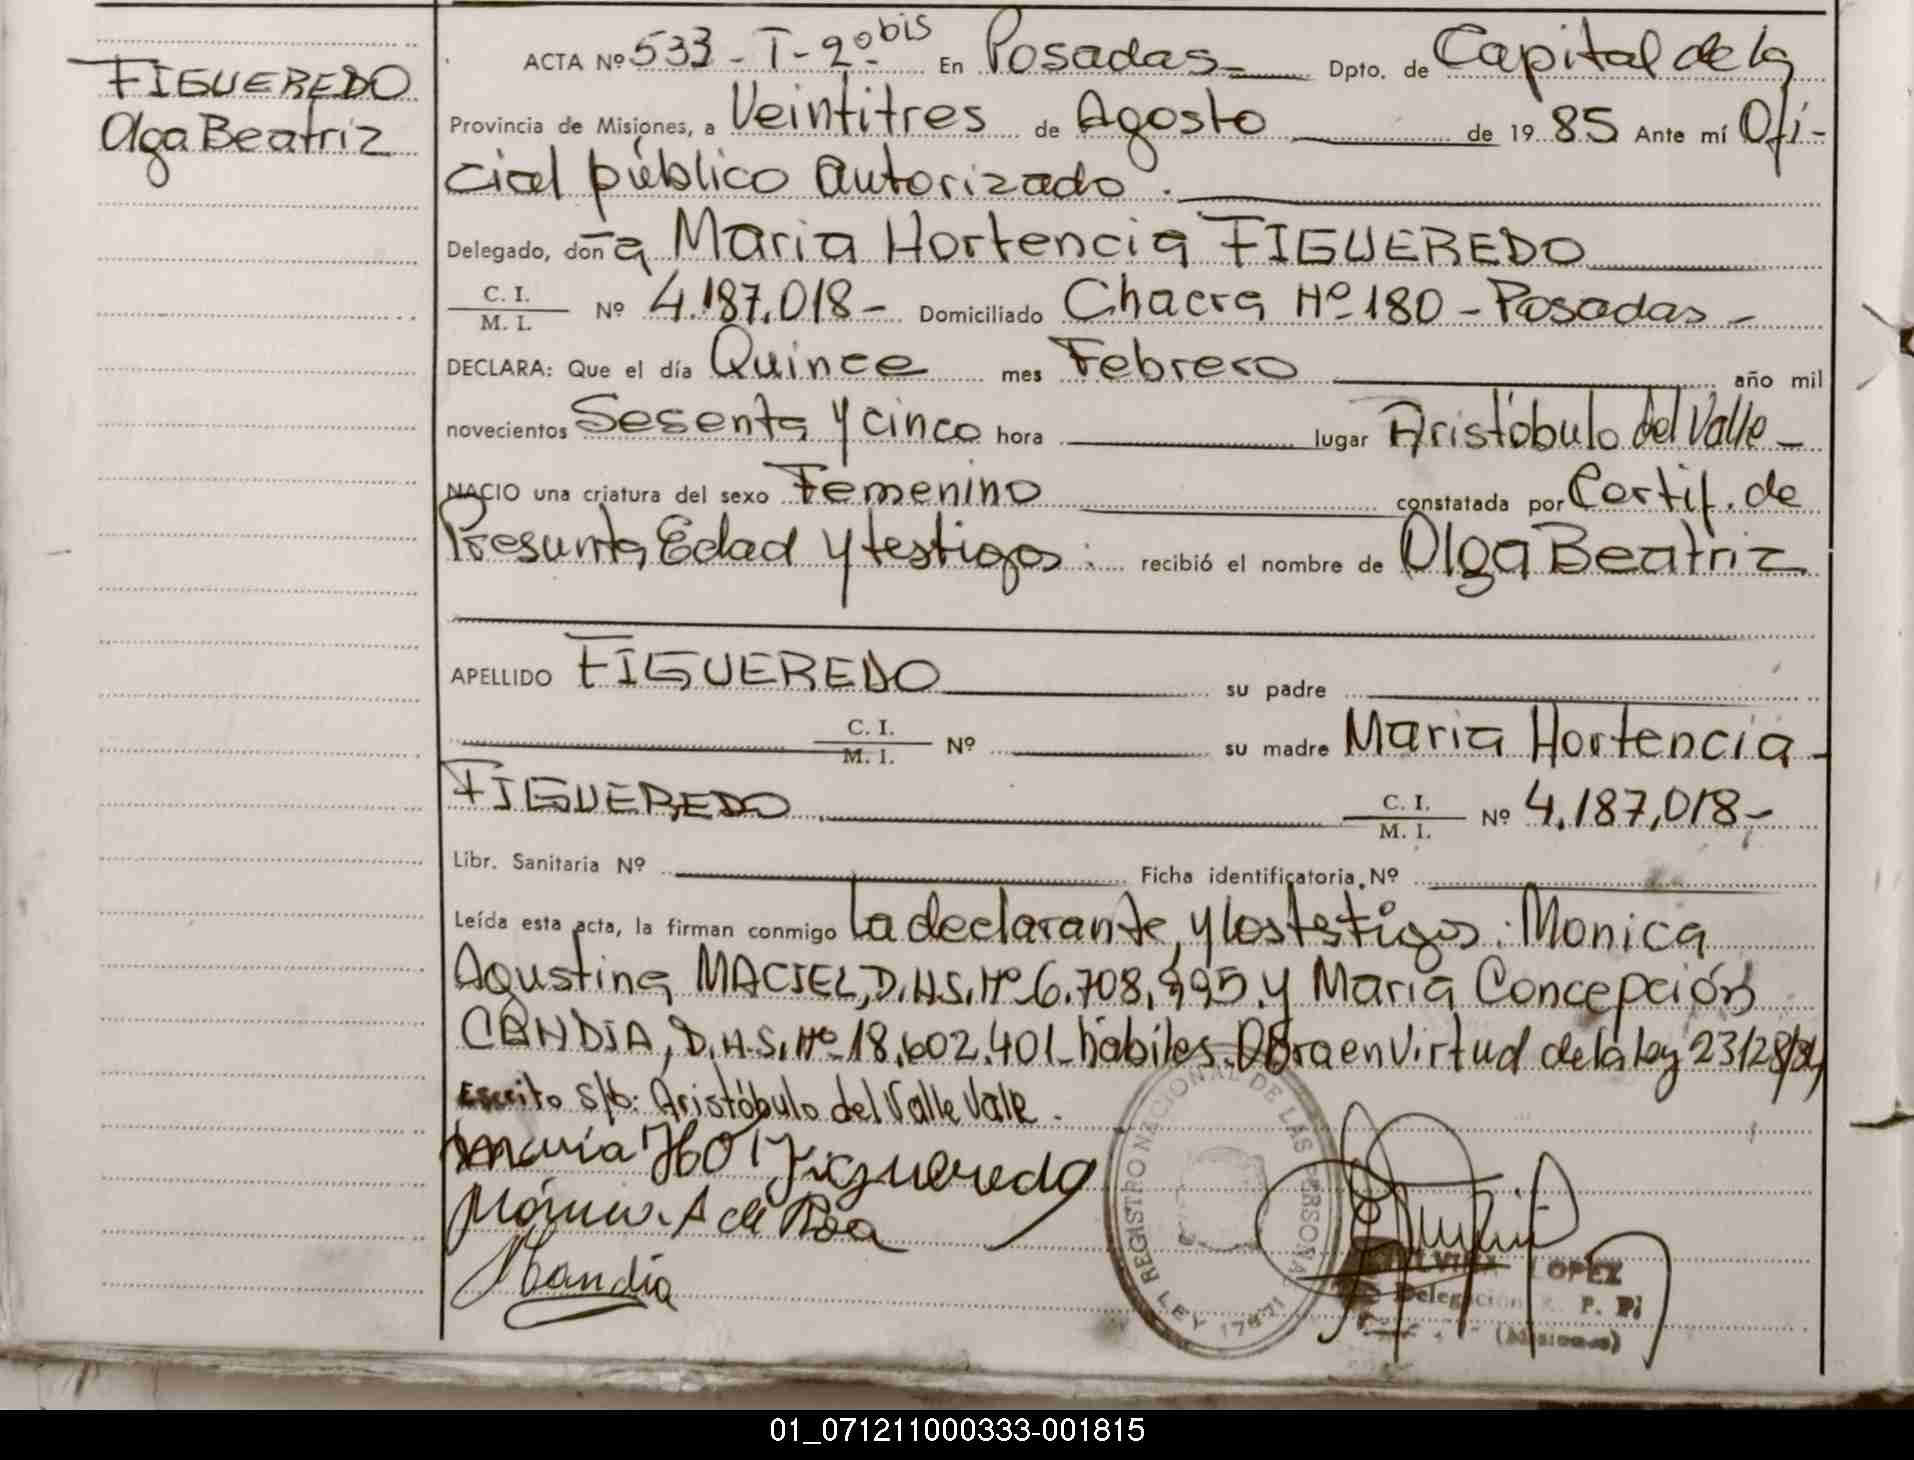 FIGUEREDO
Olga Beatriz
ACTA Nº 533 - T - 2º bis En Posadas Dpto. de Capital de la
Provincia de Misiones, a Veintitres de Agosto de 1985 Ante mí Ofi-
cial público autorizado.
Delegado, doña Maria Hortencia FIGUEREDO
C. I. / M. I. Nº 4.187.018 - Domiciliado Chacra Nº 180 - Posadas -
DECLARA: Que el día Quince mes Febrero año mil
novecientos Sesenta y cinco hora lugar Aristóbulo del Valle -
NACIO una criatura del sexo Femenino constatada por Certif. de
Presunta Edad y testigos: recibió el nombre de Olga Beatriz
APELLIDO FIGUEREDO su padre
C. I. / M. I. Nº su madre Maria Hortencia -
FIGUEREDO C. I. / M. I. Nº 4.187.018 -
Libr. Sanitaria Nº Ficha identificatoria Nº
Leída esta acta, la firman conmigo La declarante, y los testigos: Monica
Agustina MACIEL, D.N.I. Nº 6.708. y Maria Concepción
CANDIA, D.N.I. Nº 18.602.401 - hábiles. Obra en virtud de la ley 23128/84
Escrito s/b: Aristóbulo del Valle Vale.
Maria Hor Figueredo
Mónica A de
Candia
REGISTRO NACIONAL DE LAS PERSONAS
LEY 17671
LOPEZ
Delegación R. P. P.
(Misiones)
01_071211000333-001815